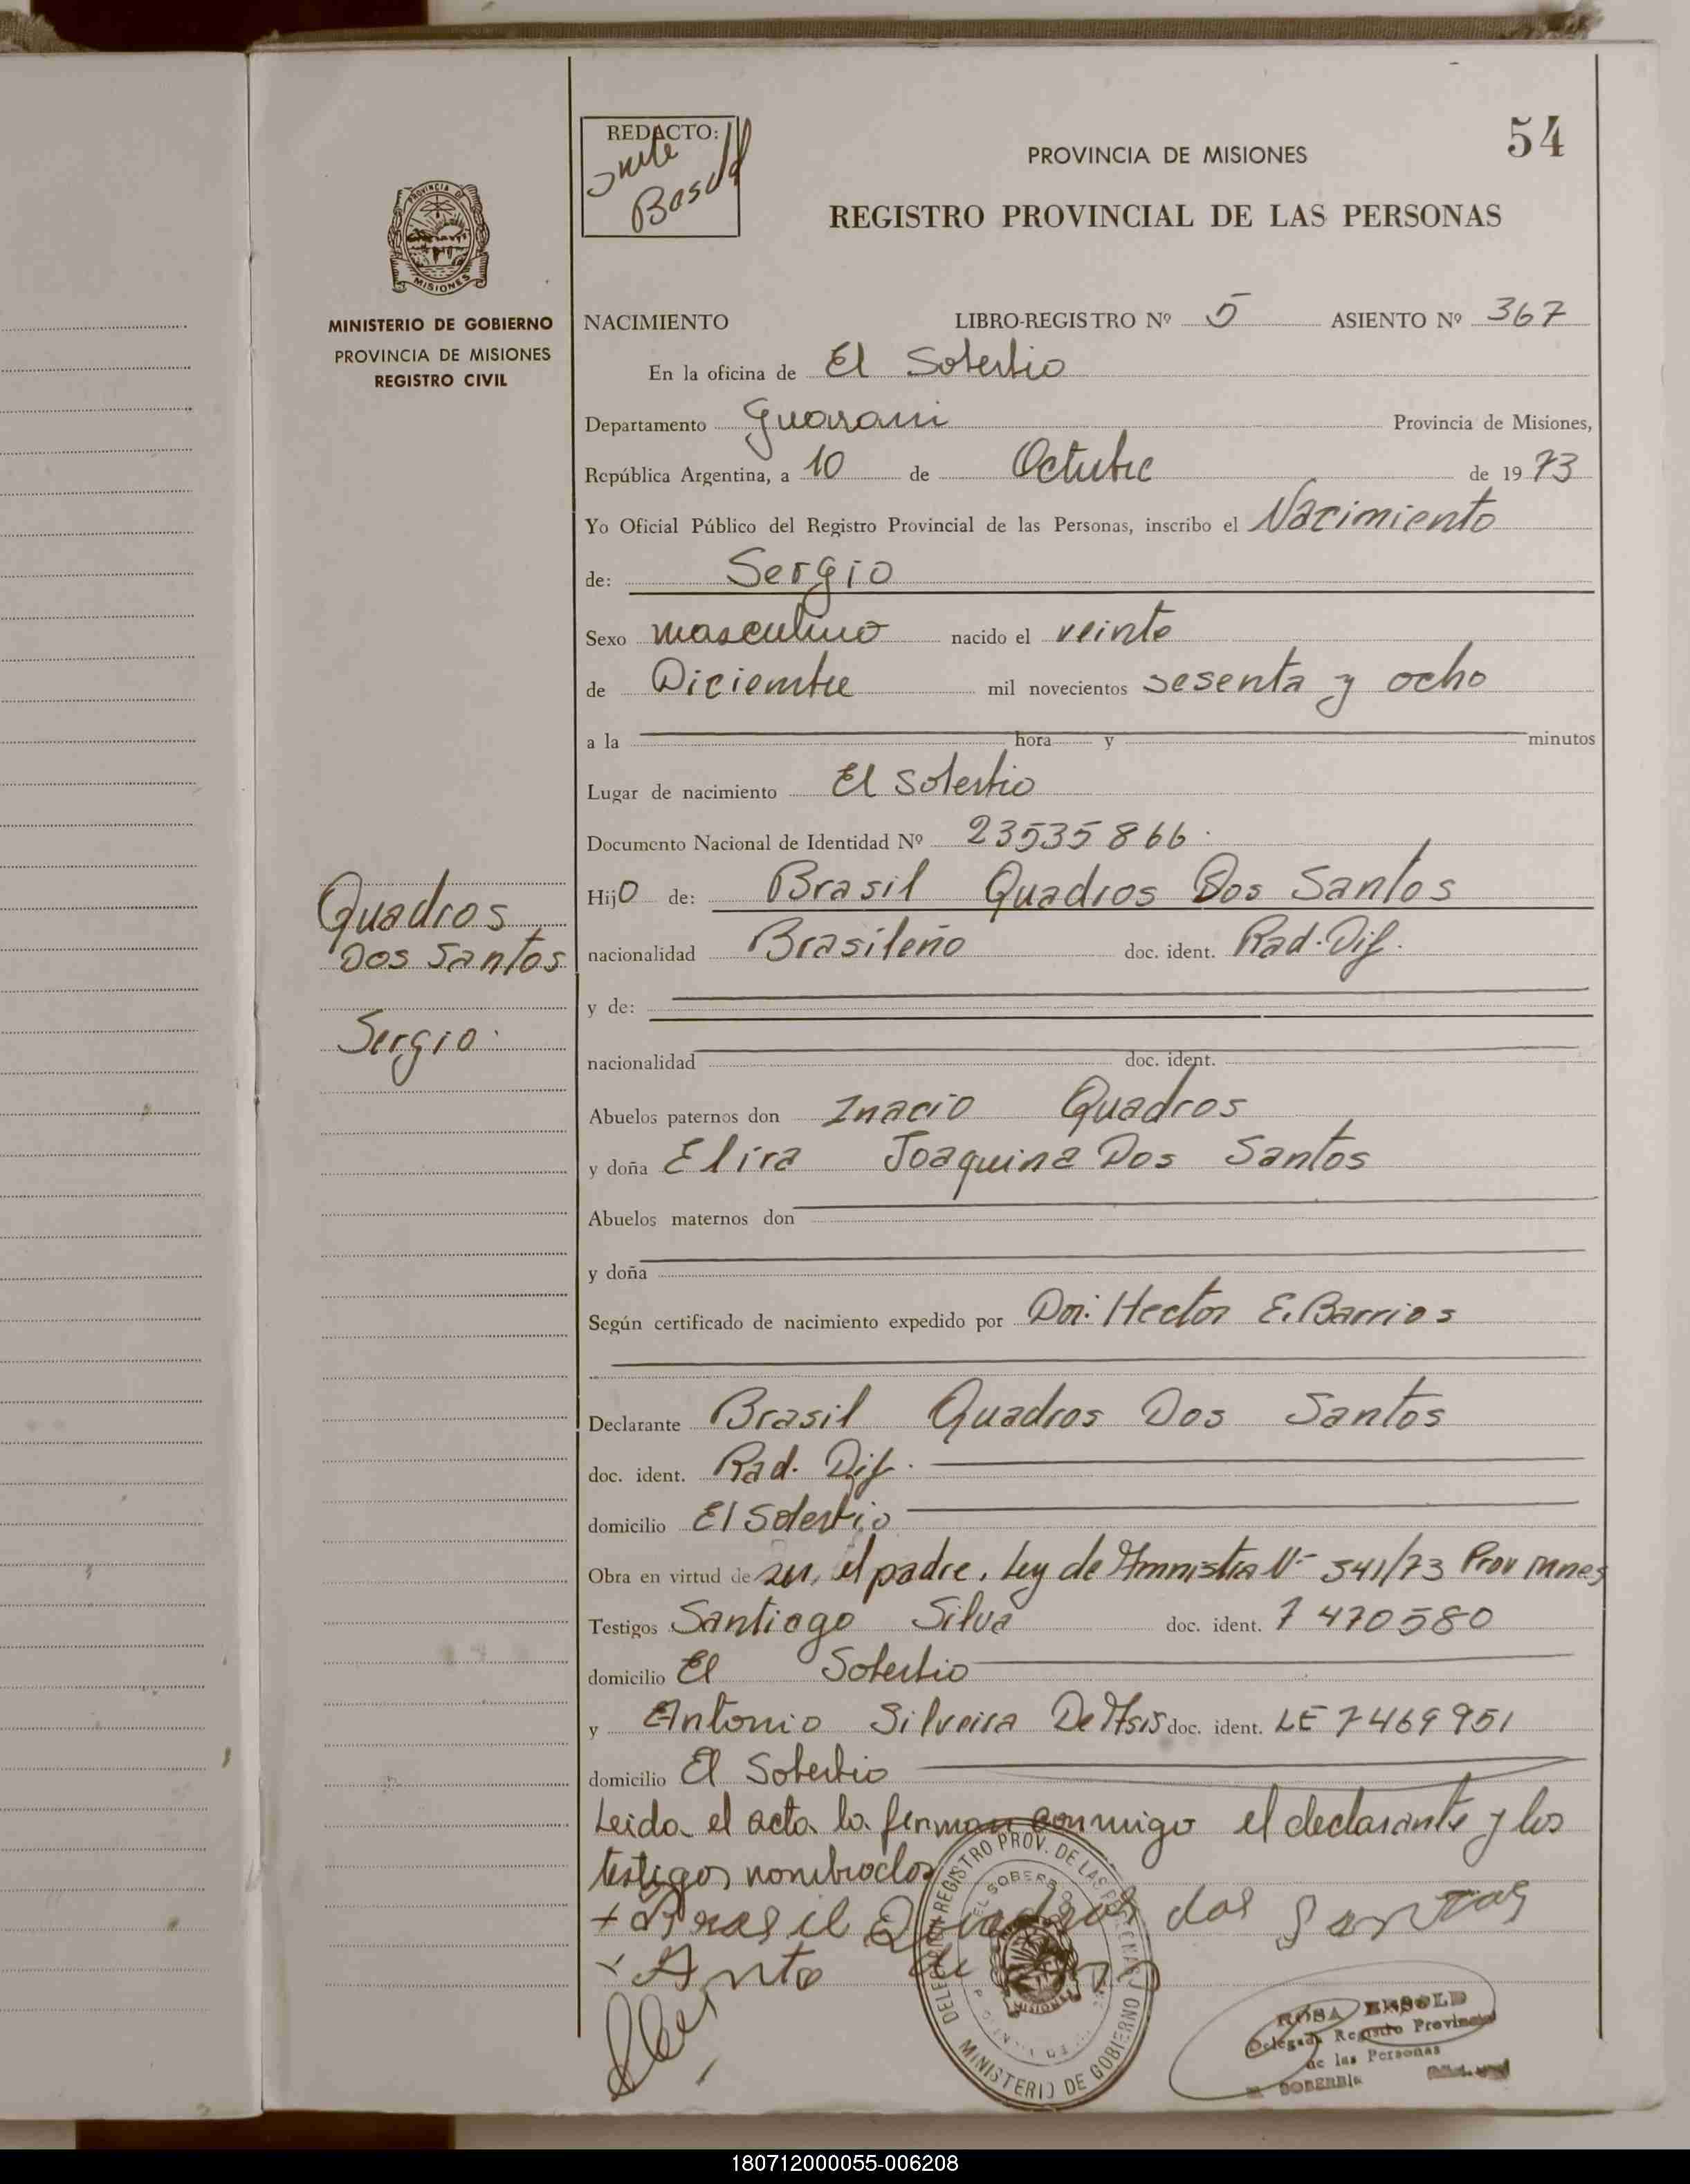 54
REDACTO:
PROVINCIA DE MISIONES
REGISTRO PROVINCIAL DE LAS PERSONAS
PROVINCIA DE
MISIONES
MINISTERIO DE GOBIERNO
PROVINCIA DE MISIONES
REGISTRO CIVIL
NACIMIENTO LIBRO-REGISTRO Nº 5 ASIENTO Nº 367
En la oficina de El Soberbio
Departamento Guarani Provincia de Misiones,
República Argentina, a 10 de Octubre de 1973
Yo Oficial Público del Registro Provincial de las Personas, inscribo el Nacimiento
de: Sergio
Sexo masculino nacido el veinte
de Diciembre mil novecientos sesenta y ocho
a la hora y minutos
Lugar de nacimiento El Soberbio
Documento Nacional de Identidad Nº 23535866
Hijo de: Brasil Quadros Dos Santos
Quadros
Dos Santos
Sergio.
nacionalidad Brasileño doc. ident. Rad. Dif.
y de:
nacionalidad doc. ident.
Abuelos paternos don Inacio Quadros
y doña Elira Joaquina Dos Santos
Abuelos maternos don
y doña
Según certificado de nacimiento expedido por Dr. Hector E. Barrios
Declarante Brasil Quadros Dos Santos
doc. ident. Rad. Dif.
domicilio El Soberbio
Obra en virtud de ser el padre. Ley de Amnistia Nº 541/73 Prov Mnes
Testigos Santiago Silva doc. ident. 7470580
domicilio El Soberbio
y Antonio Silveira De Asis doc. ident. LE 7469951
domicilio El Soberbio
Leida el acta la firman conmigo el declarante y los
testigos nombrados
+ Brasil Quadros dos Santos
DELEGACION REGISTRO PROV. DE LAS PERSONAS
MINISTERIO DE GOBIERNO
MISIONES
ROSA
Delegada Registro Provincial
de las Personas
SOBERBIO
180712000055-006208